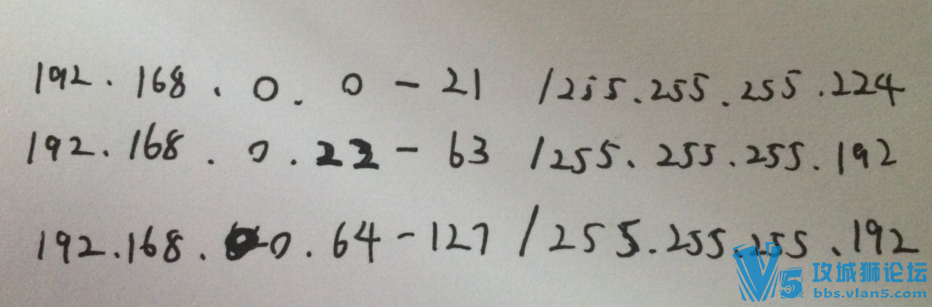 192.168.0.0-21 /255.255.255.224
192.168.0.22-63 /255.255.255.192
192.168.0.64-127 /255.255.255.192
V5 攻城狮论坛
bbs.vlan5.com